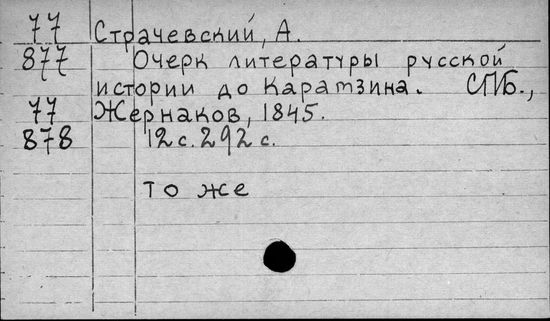 77 Страчевский, А.
877 Очерк литературы русской
истории до Карамзина. СПБ.,
77 Жернаков, 1845.
878 12 с. 292 с.
То же